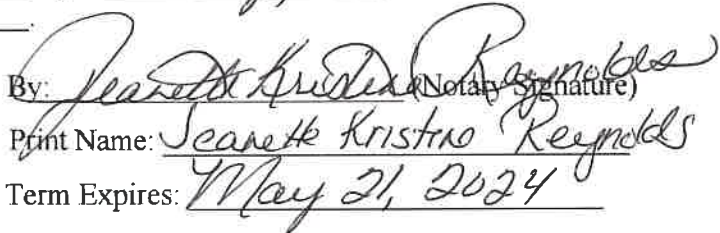 By: Jeanette Kristina Reynolds (Notary Signature)
Print Name: Jeanette Kristina Reynolds
Term Expires: May 21, 2024